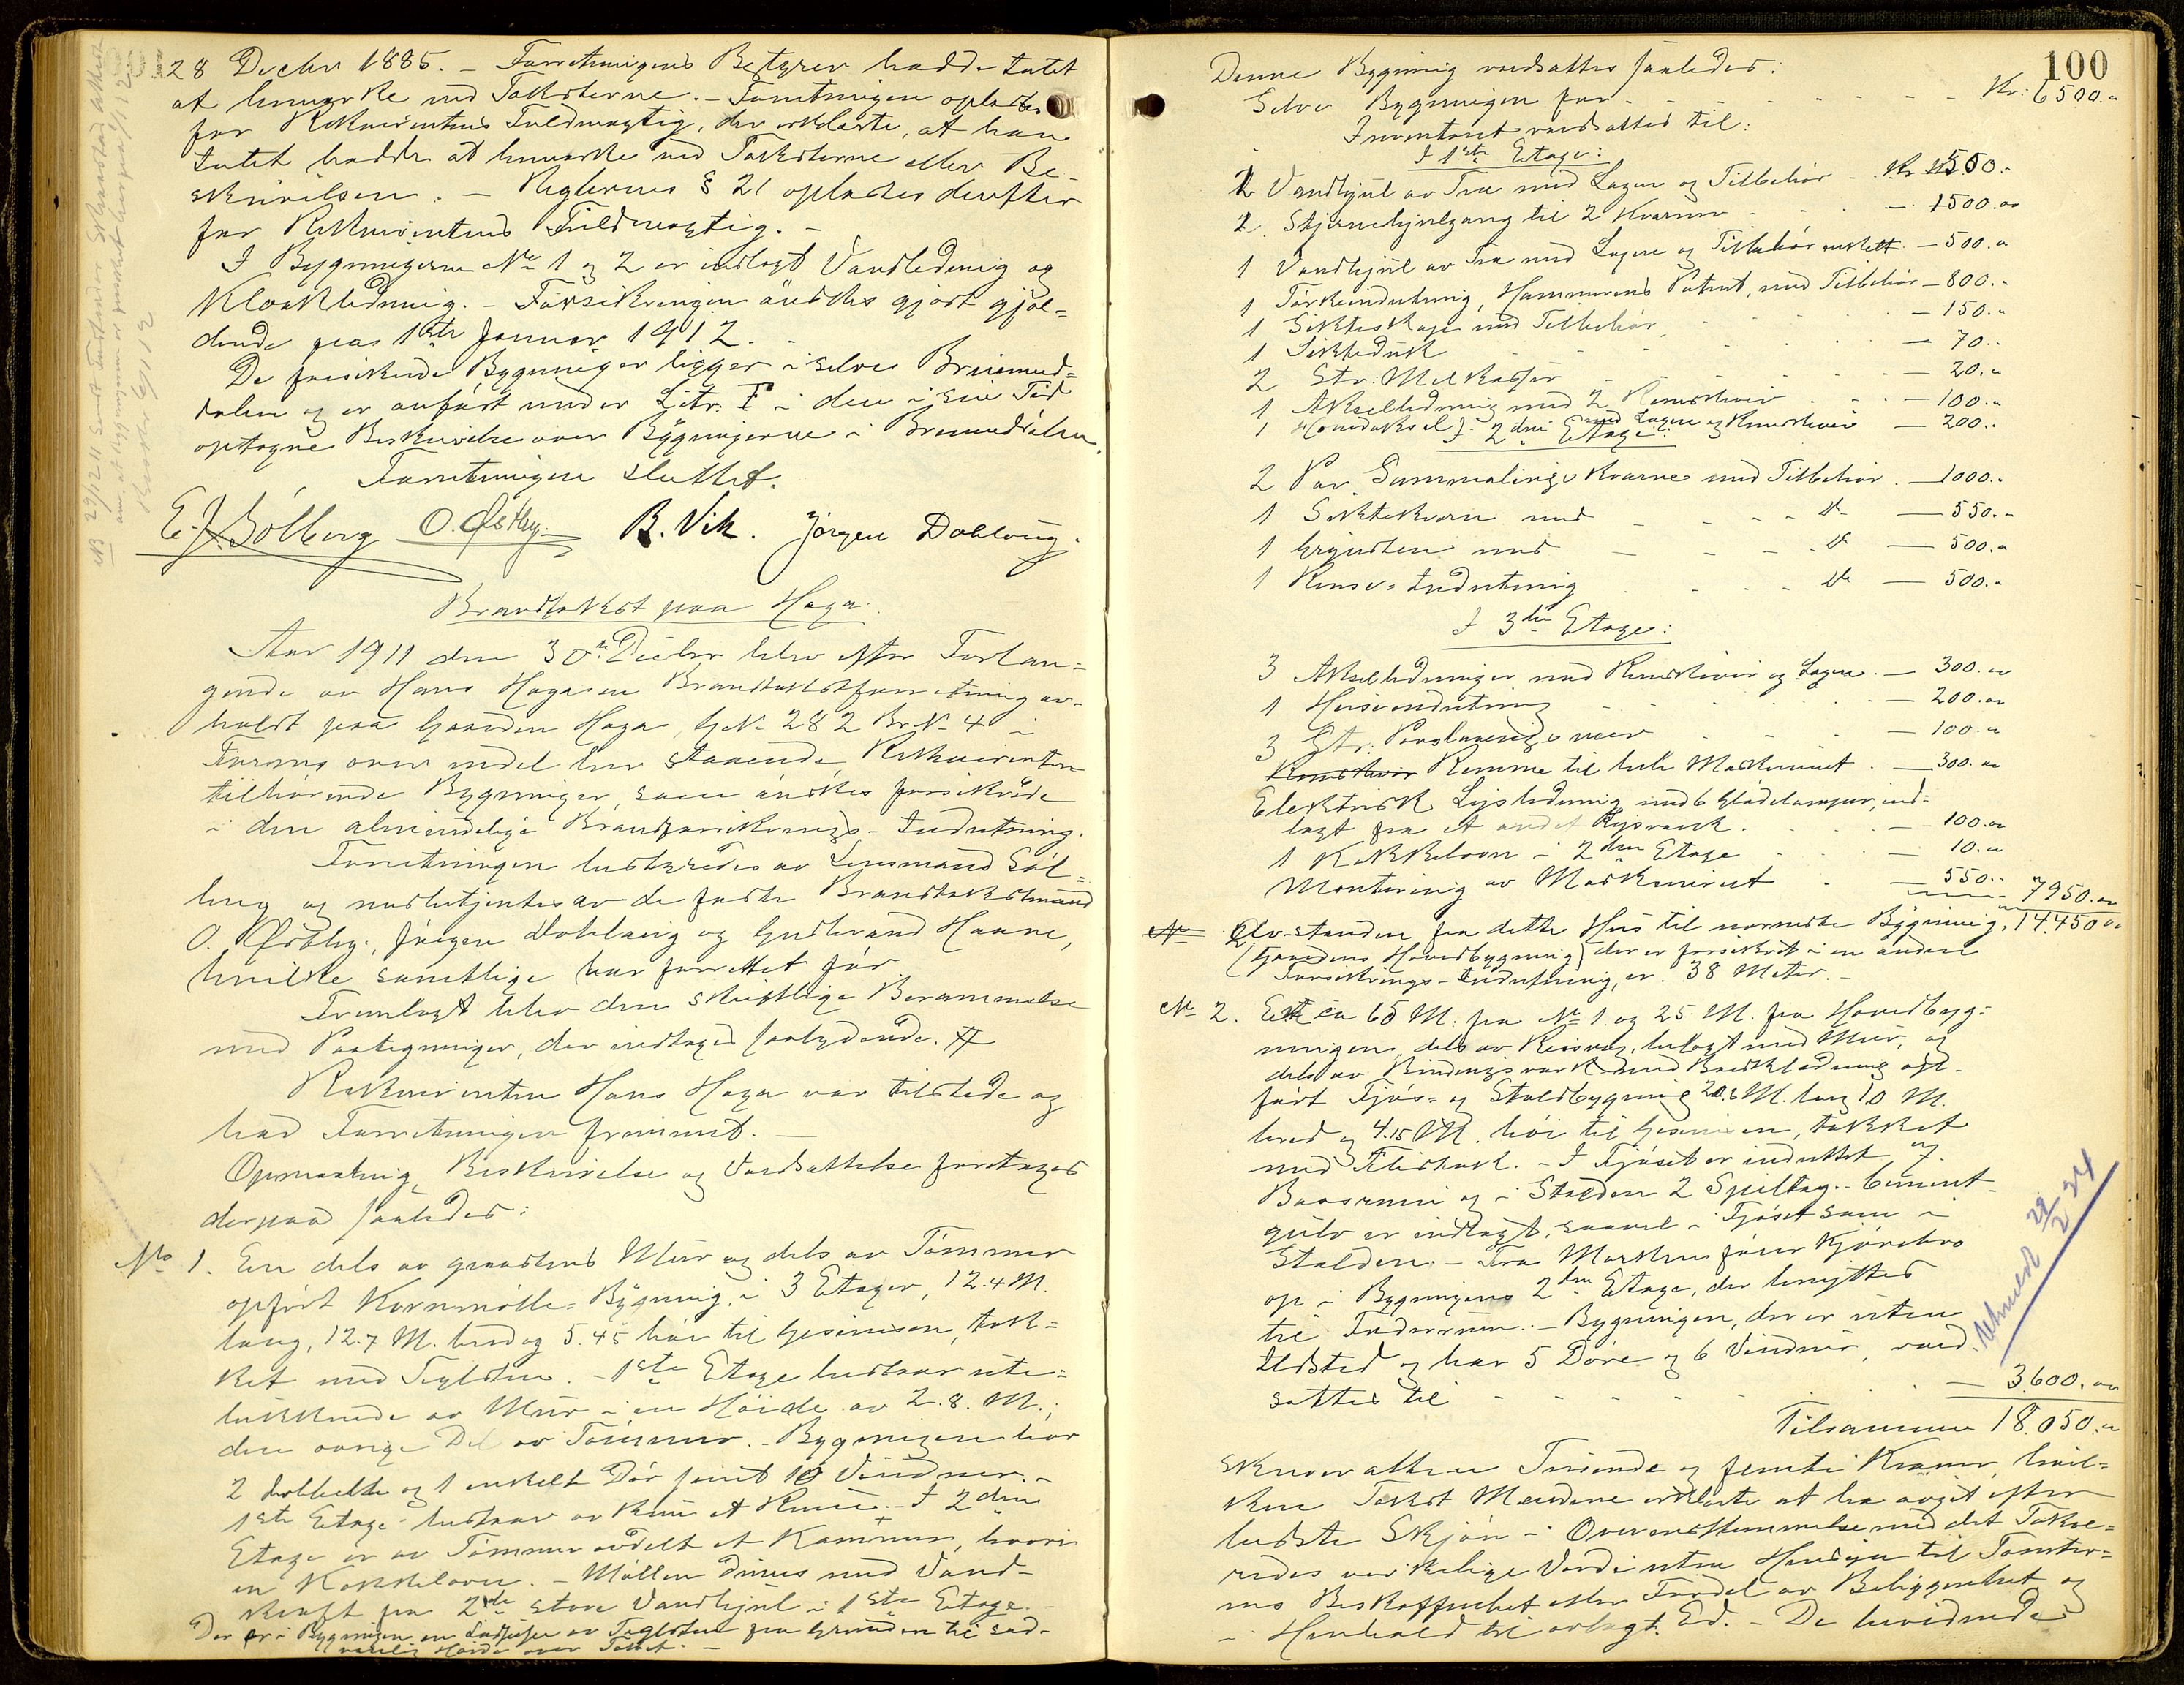 28 Decbr 1885. – Forretningens Bestyrer hadde intet
at bemerke ved Taksterne. – Forretningen oplæstes
for Rekvirentens Fuldmægtig, der erklærte, at han
intet hadde at bemerke ved Taksterne eller Be-
skrivelsen. – Reglernes § 21 oplæstes derefter
for Rekvirentens Fuldmægtig. –
I Bygningerne No 1 og 2 er indlagt Vandledning og
Kloakledning. – Forsikringen ønskes gjort gjæl=
dende fra 1ste Januar 1912. –
De forsikrede Bygninger ligger i selve Brumund=
dalen og er anført under Litr. F i den i sin Tid
optagne Beskrivelse over Bygningerne i Brumunddalen.
Forretningen sluttet.
E. J. Solberg O. Østby. B. Vik. Jørgen Dobloug.
Brandtakst paa Haga.
Aar 1911 den 30te Decbr blev efter Forlan=
gende av Hans Haga en Brandtakstforretning av-
holdt paa Gaarden Haga, G.No 282 Br.No 4 i
Furnes over endel her staaende, Rekvirenten
tilhørende Bygninger, som ønskes forsikrede
i den almindelige Brandforsikrings-Indretning.
Forretningen bestyredes av Lensmand Sol=
berg og medbetjentes av de faste Brandtakstmænd
O. Østby, Jørgen Dobloug og Gudbrand Haave,
hvilke samtlige har forrettet før.
Fremlagt blev den skriftlige Berammelse
med Paategninger, der indtages saalydende. #
Rekvirenten Hans Haga var tilstede og
bad Forretningen fremmet. –
Opmaaling, Beskrivelse og Værdsættelse foretages
derpaa saaledes:
No 1. En dels av graastens Mur og dels av Tømmer
opført Kornmølle=Bygning i 3 Etager, 12.4 M.
lang, 12.7 M. bred og 5.45 høi til Gesimsen, tæk=
ket med Teglsten. – 1ste Etage bestaar ute=
lukkende av Mur i en Høide av 2.8. M.;
den øvrige Del av Tømmer. – Bygningen har
2 dobbelte og 1 enkelt Dør samt 10 Vinduer. –
1ste Etage bestaar av kun et Rum. – I 2den
Etage er av Tømmer avdelt et Kammer, hvori
en Kakkelovn. – Møllen drives med Vand-
kraft fra 2de store Vandhjul i 1ste Etage. –
Der er i Bygningen en Ludpipe av Teglsten fra Grunden til sæd-
vanlig Høide over Taket. –
100
Denne Bygning værdsættes saaledes:
Selve Bygningen for - - - - Kr: 6500.-
Inventaret værdsættes til:
I 1ste Etage:
2 Vandhjul av Træ med Lagere og Tilbehør - Kr. 1550.-
2 Stjernehjulgang til 2 Kværner - - 1500.-
1 Vandhjul av Træ med Lagere og Tilbehør enkelt - 500.-
1 Tørkeindretning, Hammerens Patent, med Tilbehør - 800.-
1 Sikteskape med Tilbehør - 150.-
1 Siktedusk - 70.-
2 Str: Melkasser - 20.-
1 Akselledning med 2 Remskiver - 100.-
1 Hovedaksel med Lagere og Remskiver - 200.-
I 2den Etage:
2 Par Sammalings Kværne med Tilbehør - 1000.-
1 Siktekværn med - - do - 550.-
1 Grynsten med - - do - 500.-
1 Rense=Indretning do - 500.-
I 3die Etage:
3 Akselledninger med Remskiver og Lagere - 300.-
1 Heiseindretning - 200.-
3 Str: - 100.-
Remskiver Remme til hele Maskineriet - 300.-
Elektrisk Lysledning med 6 Glødelamper, ind=
lagt fra et andet Lysværk - 100.-
1 Kakkelovn i 2den Etage - 10.-
Montering av Maskineriet - 550.- 7950.-
Avstanden fra dette Hus til nærmeste Bygning, 14.450.-
(Gaardens Hovedbygning) der er forsikret i en anden
Forsikrings-Indretning, er 38 Meter. –
No 2. En ca 65 M. fra No 1 og 25 M. fra Hovedbyg=
ningen dels av Reisværk, belagt med Mur, og
dels av Bindingsverk med Bordklædning op=
ført Fjøs= og Staldbygning 20.6 M. lang 10 M.
bred og 4.15 M. høi til Gesimsen, tækket
med Flistak. – I Fjøset er indrettet 7
Baasrum og i Stalden 2 Spiltaug. – Cement-
gulv er indlagt, saavel i Fjøset som i
Stalden. – Fra Marken fører Kjørebro
op i Bygningens 2den Etage, der benyttes
til Foderrum. – Bygningen, der er uten
Ildsted og har 5 Døre og 6 Vinduer, værd-
sættes til - - - 3600.-
Tilsammen 18.050.-
skriver atten Tusinde og femti Kroner, hvil=
ken Takst Mændene erklærte at ha avgit efter
bedste Skjøn i Overensstemmelse med det Takse=
redes virkelige Værdi uten Hensyn til Tomter=
nes Beskaffenhet eller Fordel av Beliggenhet og
i Henhold til avlagt Ed. – De bevidnede